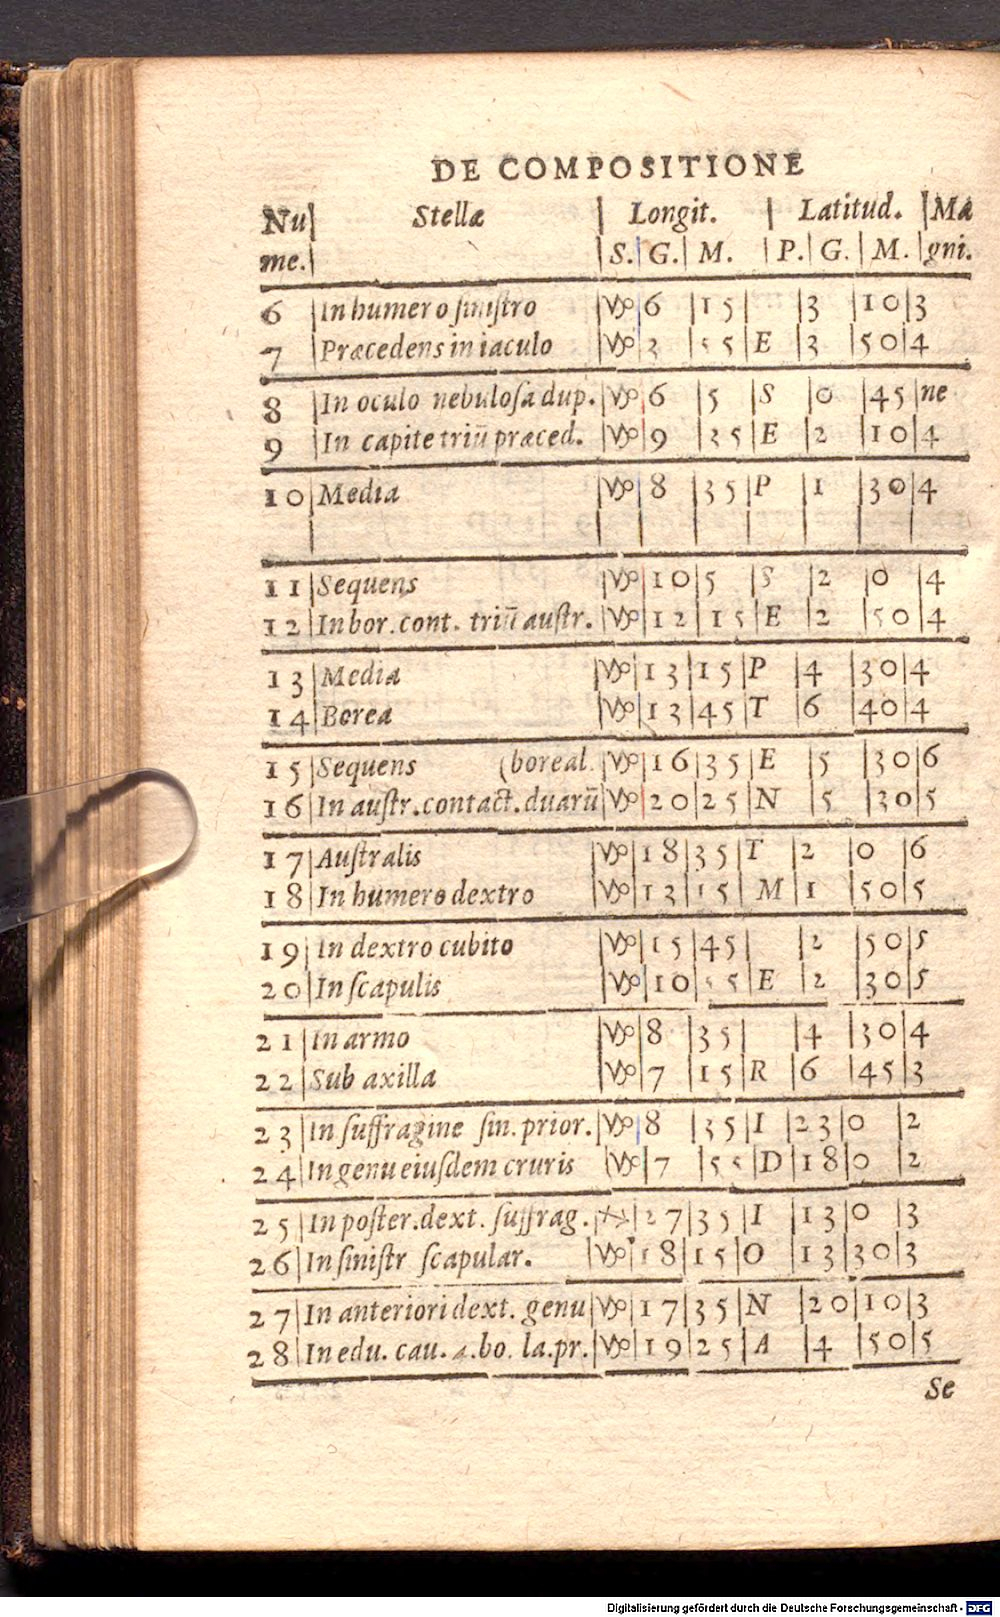 DE COMPOSITIONE
Nu| Stellæ | Longit. | Latitud. |Ma
me.| |S.|G.| M. |P.|G.| M.|gni.
6 |In humero sinistro |♑|6 |15| |3 |10|3
7 |Præcedens in iaculo |♑|3 |55|E |3 |50|4
8 |In oculo nebulosa dup.|♑|6 |5 |S |0 |45|ne
9 |In capite triũ præced.|♑|9 |35|E |2 |10|4
10|Media |♑|8 |35|P |1 |30|4
11|Sequens |♑|10|5 |S |2 |0 |4
12|In bor.cont. triũ austr.|♑|12|15|E |2 |50|4
13|Media |♑|13|15|P |4 |30|4
14|Borea |♑|13|45|T |6 |40|4
15|Sequens (boreal.|♑|16|35|E |5 |30|6
16|In austr.contact.duarũ|♑|20|25|N |5 |30|5
17|Australis |♑|18|35|T |2 |0 |6
18|In humero dextro |♑|13|15|M|1 |50|5
19|In dextro cubito |♑|15|45| |2 |50|5
20|In scapulis |♑|10|55|E |2 |30|5
21|In armo |♑|8 |35| |4 |30|4
22|Sub axilla |♑|7 |15|R |6 |45|3
23|In suffragine sin.prior.|♑|8 |35|I |23|0 |2
24|In genu eiusdem cruris |♑|7 |55|D|18|0 |2
25|In poster.dext. suffrag.|♐|27|35|I |13|0 |3
26|In sinistr scapular. |♑|18|15|O |13|30|3
27|In anteriori dext. genu|♑|17|35|N |20|10|3
28|In edu. cau. a.bo. la.pr.|♑|19|25|A |4 |50|5
Se
Digitalisierung gefördert durch die Deutsche Forschungsgemeinschaft - DFG